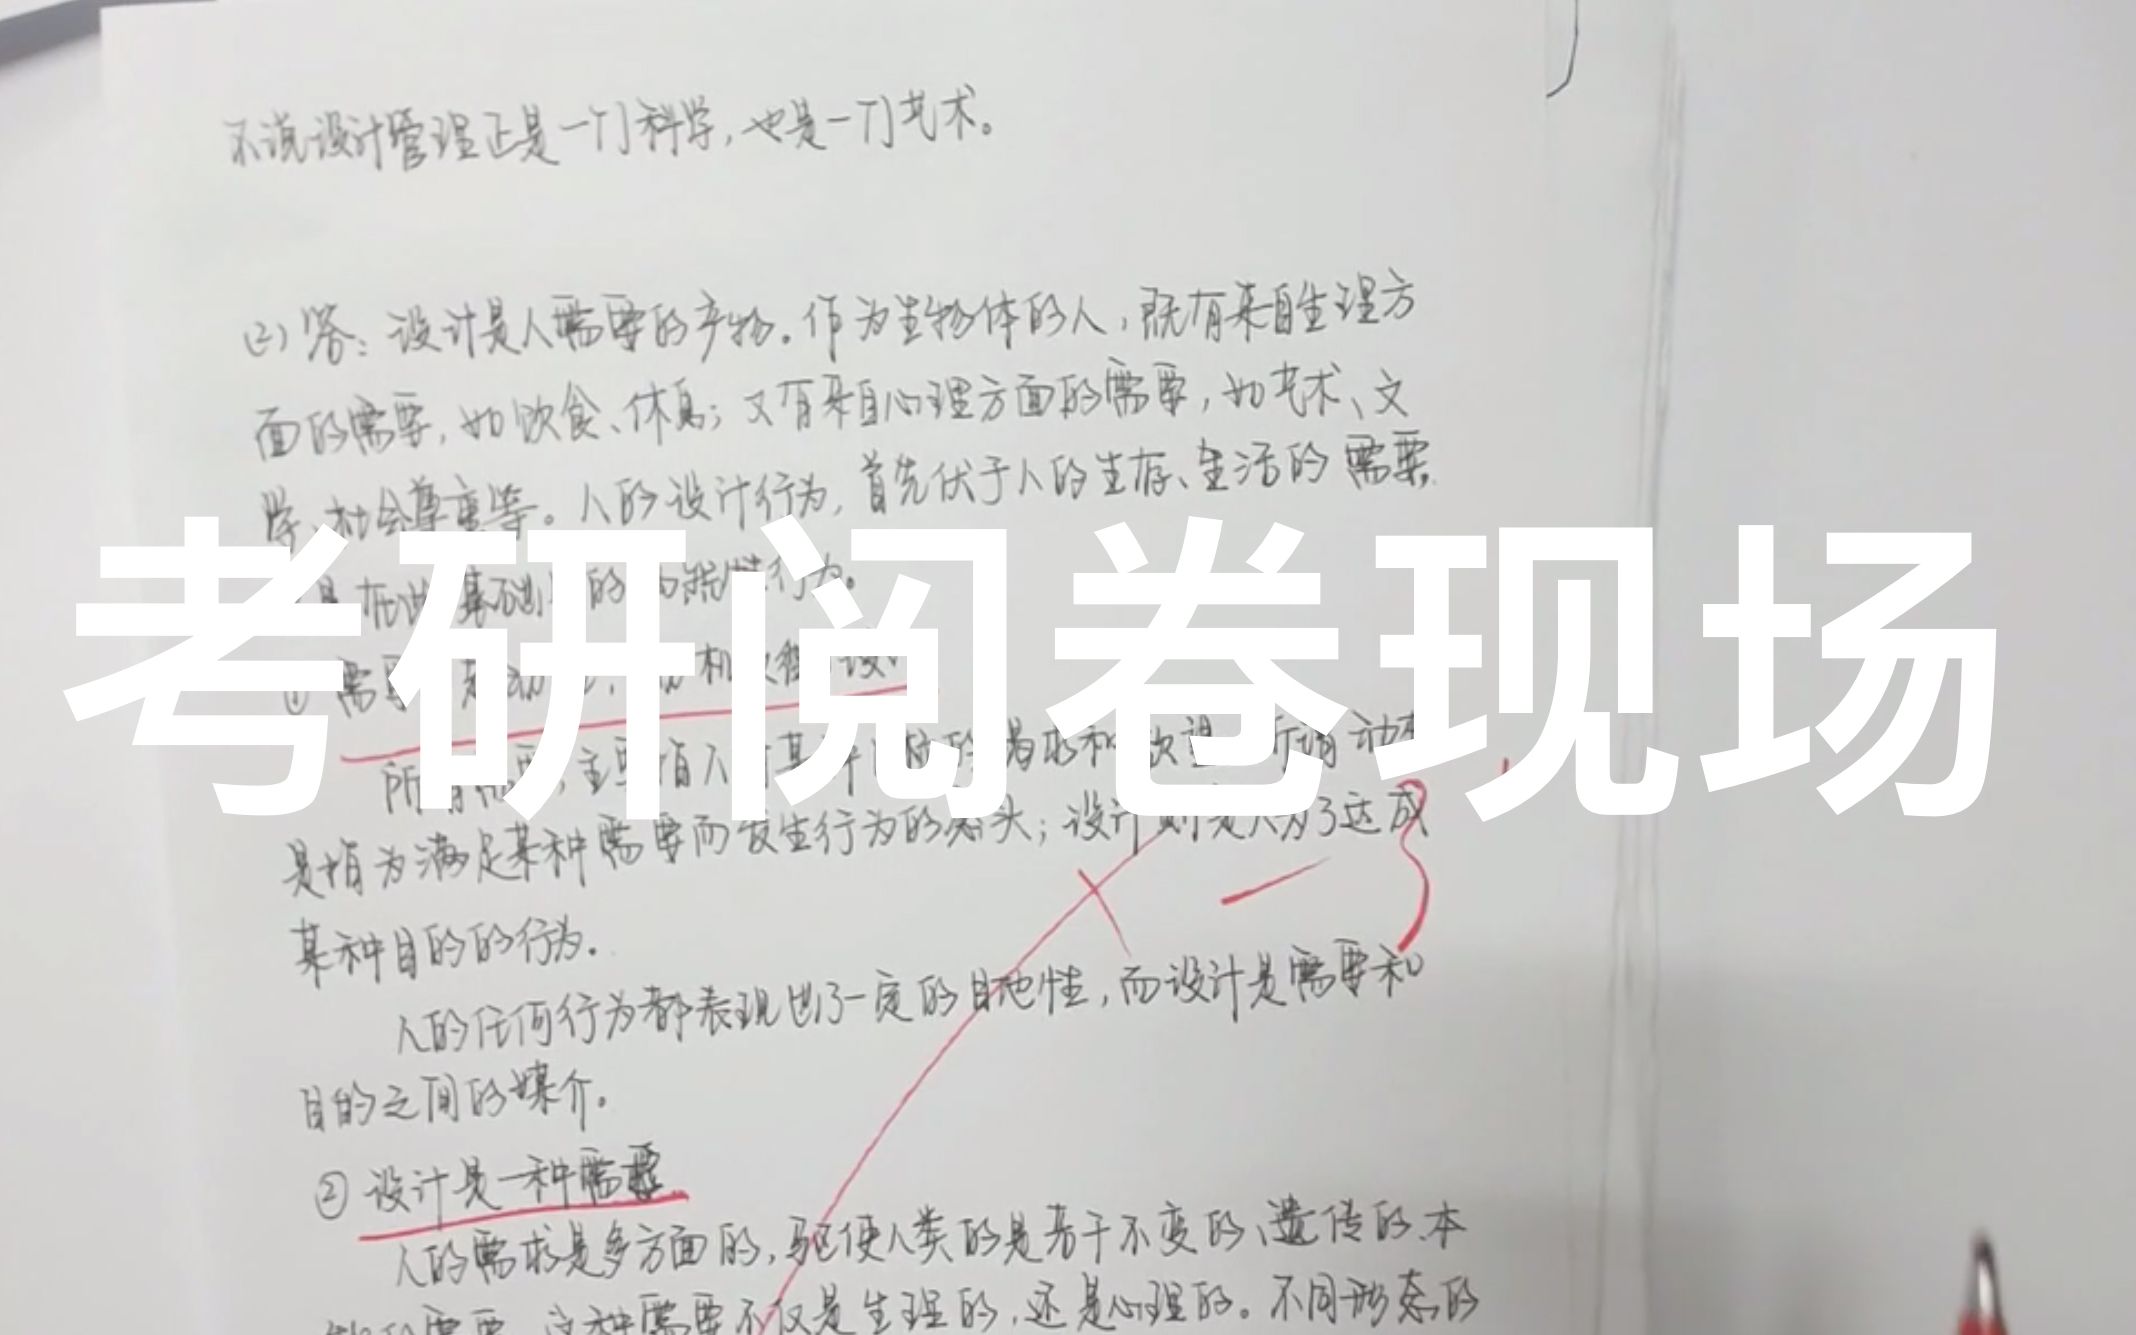 不说设计管理正是一门科学,也是一门艺术。
(2)答:设计是人需要的产物。作为生物体的人,既有来自生理方
面的需要,如饮食、休息;又有来自心理方面的需要,如艺术、文
学、社会尊重等。人的设计行为,首先伏于人的生存、生活的需要,
考研阅卷现场
是指为满足某种需要而发生行为的念头;设计则是人为了达成
某种目的的行为.
人的任何行为都表现出了一定的目的性,而设计是需要和
目的之间的媒介。
②设计是一种需要
人的需求是多方面的,驱使人类的是若干不变的、遗传的、本
需要,这种需要不仅是生理的,还是心理的。不同形态的